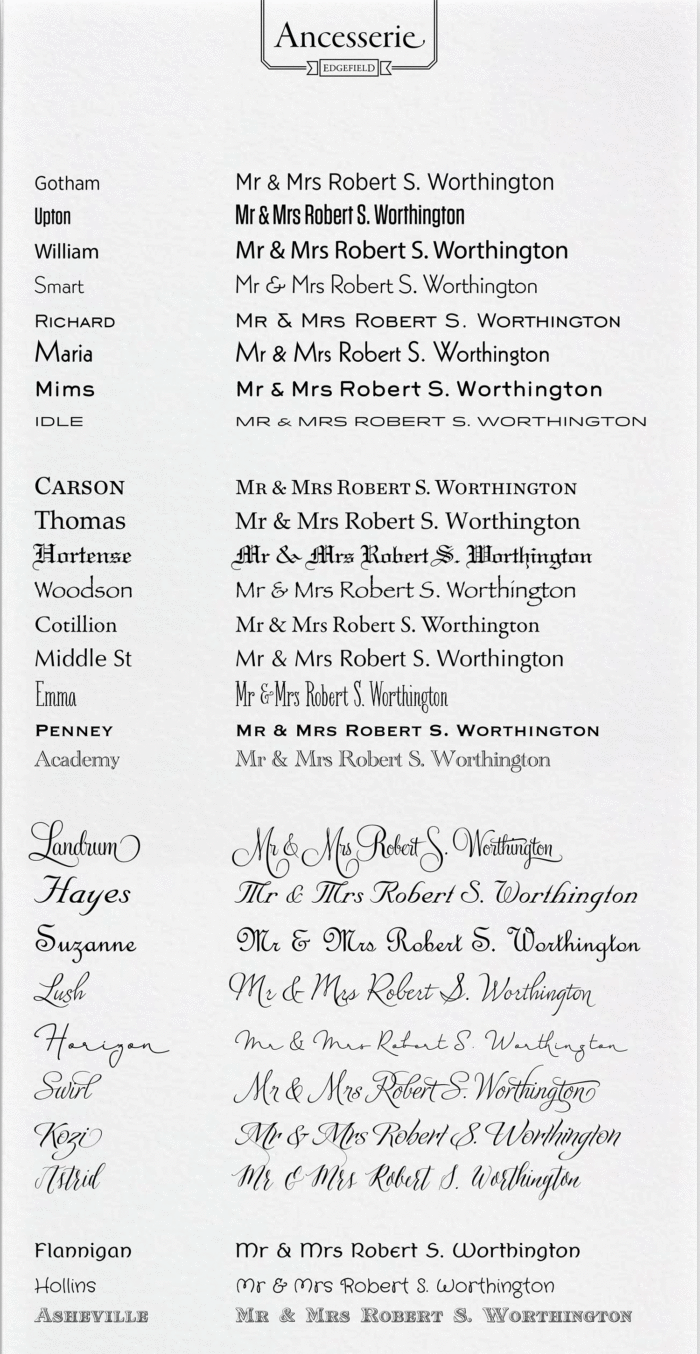 Ancesserie
EDGEFIELD
Gotham Mr & Mrs Robert S. Worthington
Upton Mr & Mrs Robert S. Worthington
William Mr & Mrs Robert S. Worthington
Smart Mr & Mrs Robert S. Worthington
RICHARD MR & MRS ROBERT S. WORTHINGTON
Maria Mr & Mrs Robert S. Worthington
Mims Mr & Mrs Robert S. Worthington
IDLE MR & MRS ROBERT S. WORTHINGTON
CARSON MR & MRS ROBERT S. WORTHINGTON
Thomas Mr & Mrs Robert S. Worthington
Hortense Mr & Mrs Robert S. Worthington
Woodson Mr & Mrs Robert S. Worthington
Cotillion Mr & Mrs Robert S. Worthington
Middle St Mr & Mrs Robert S. Worthington
Emma Mr & Mrs Robert S. Worthington
PENNEY MR & MRS ROBERT S. WORTHINGTON
Academy Mr & Mrs Robert S. Worthington
Landrum Mr & Mrs Robert S. Worthington
Hayes Mr & Mrs Robert S. Worthington
Suzanne Mr & Mrs Robert S. Worthington
Lush Mr & Mrs Robert S. Worthington
Horizon Mr & Mrs Robert S. Worthington
Swirl Mr & Mrs Robert S. Worthington
Kozi Mr & Mrs Robert S. Worthington
Astrid Mr & Mrs Robert S. Worthington
Flannigan Mr & Mrs Robert S. Worthington
Hollins Mr & Mrs Robert S. Worthington
ASHEVILLE MR & MRS ROBERT S. WORTHINGTON